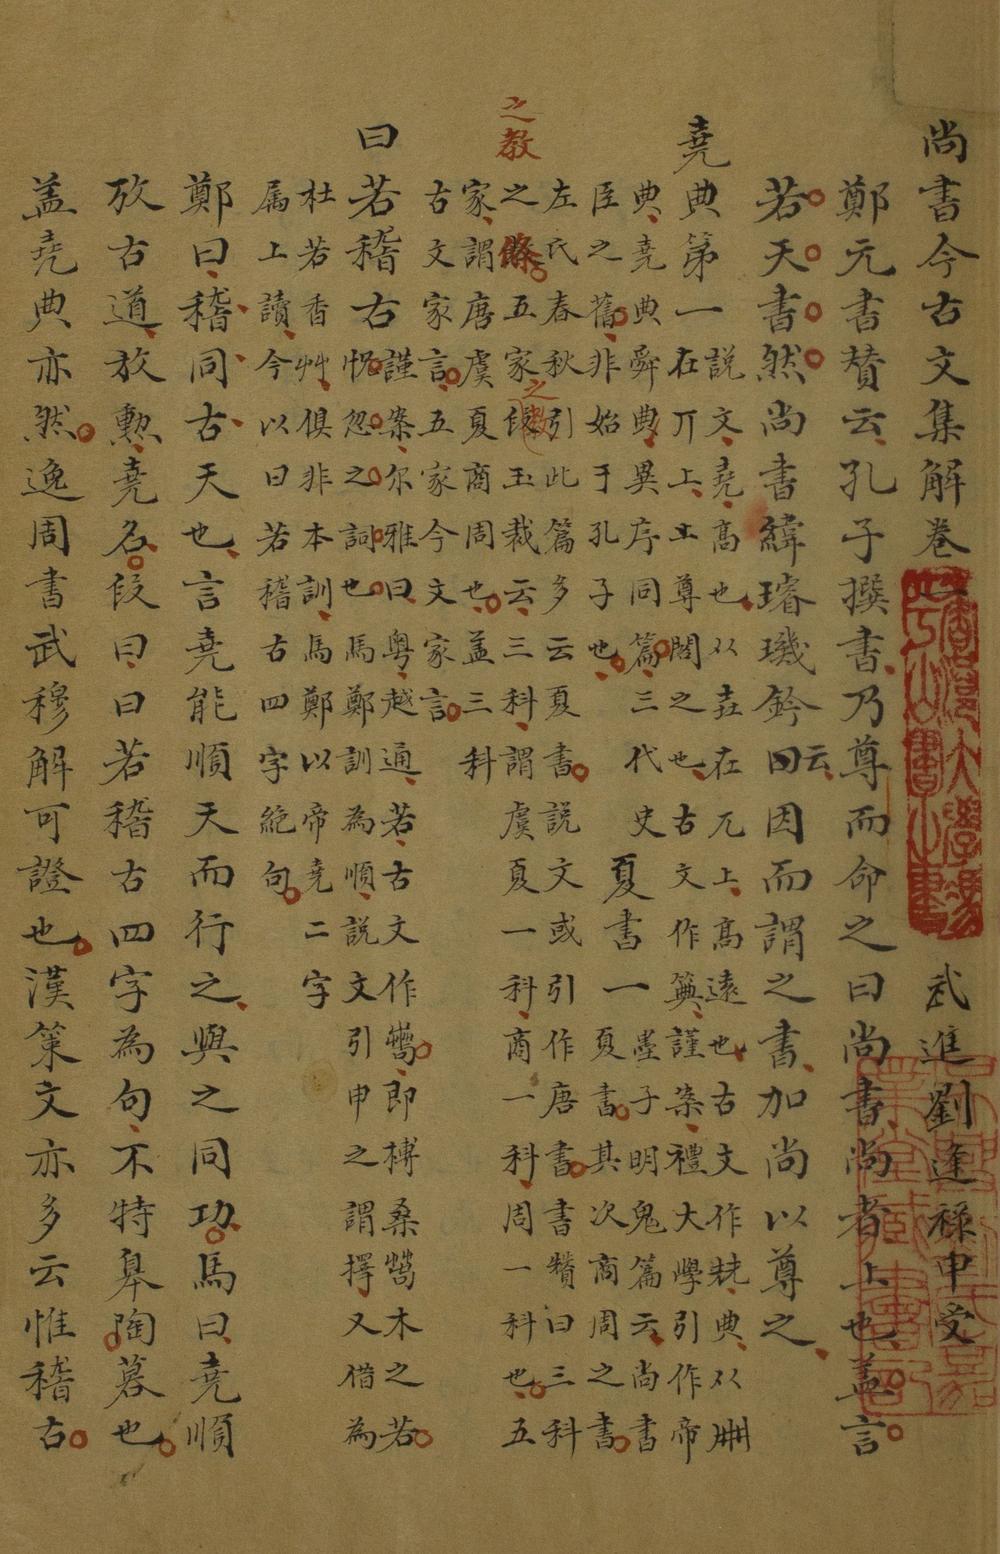 尚書今古文集解卷一 武進劉逢祿申受
鄭元書贊云孔子撰書乃尊而命之曰尚書尚者上也蓋言
若天書然尚書緯璿璣鈐云因而謂之書加尚以尊之
堯典第一
說文堯高也从垚在兀上高遠也古文作𡋰典从冊
在丌上尊閣之也古文作䉕謹案禮大學引作帝
典堯典舜典異序同篇三代史
臣之舊非始于孔子也
夏書一
墨子明鬼篇云尚書
夏書其次商周之書
左氏春秋引此篇多云夏書說文或引作唐書書贊曰三科
之教五家之教段玉裁云三科謂虞夏一科商一科周一科也五
家謂唐虞夏商周也蓋三科
古文家言五家今文家言
曰若稽古
謹案尔雅曰粤越通若古文作䒩即榑桑䒩木之若
怳忽之詞也馬鄭訓為順說文引申之謂擇又借為
杜若香艸俱非本訓馬鄭以帝堯二字
屬上讀今以曰若稽古四字絕句
鄭曰稽同古天也言堯能順天而行之與之同功馬曰堯順
攷古道放勳堯名段曰曰若稽古四字為句不特皋陶暮也
蓋堯典亦然逸周書武穆解可證也漢策文亦多云惟稽古